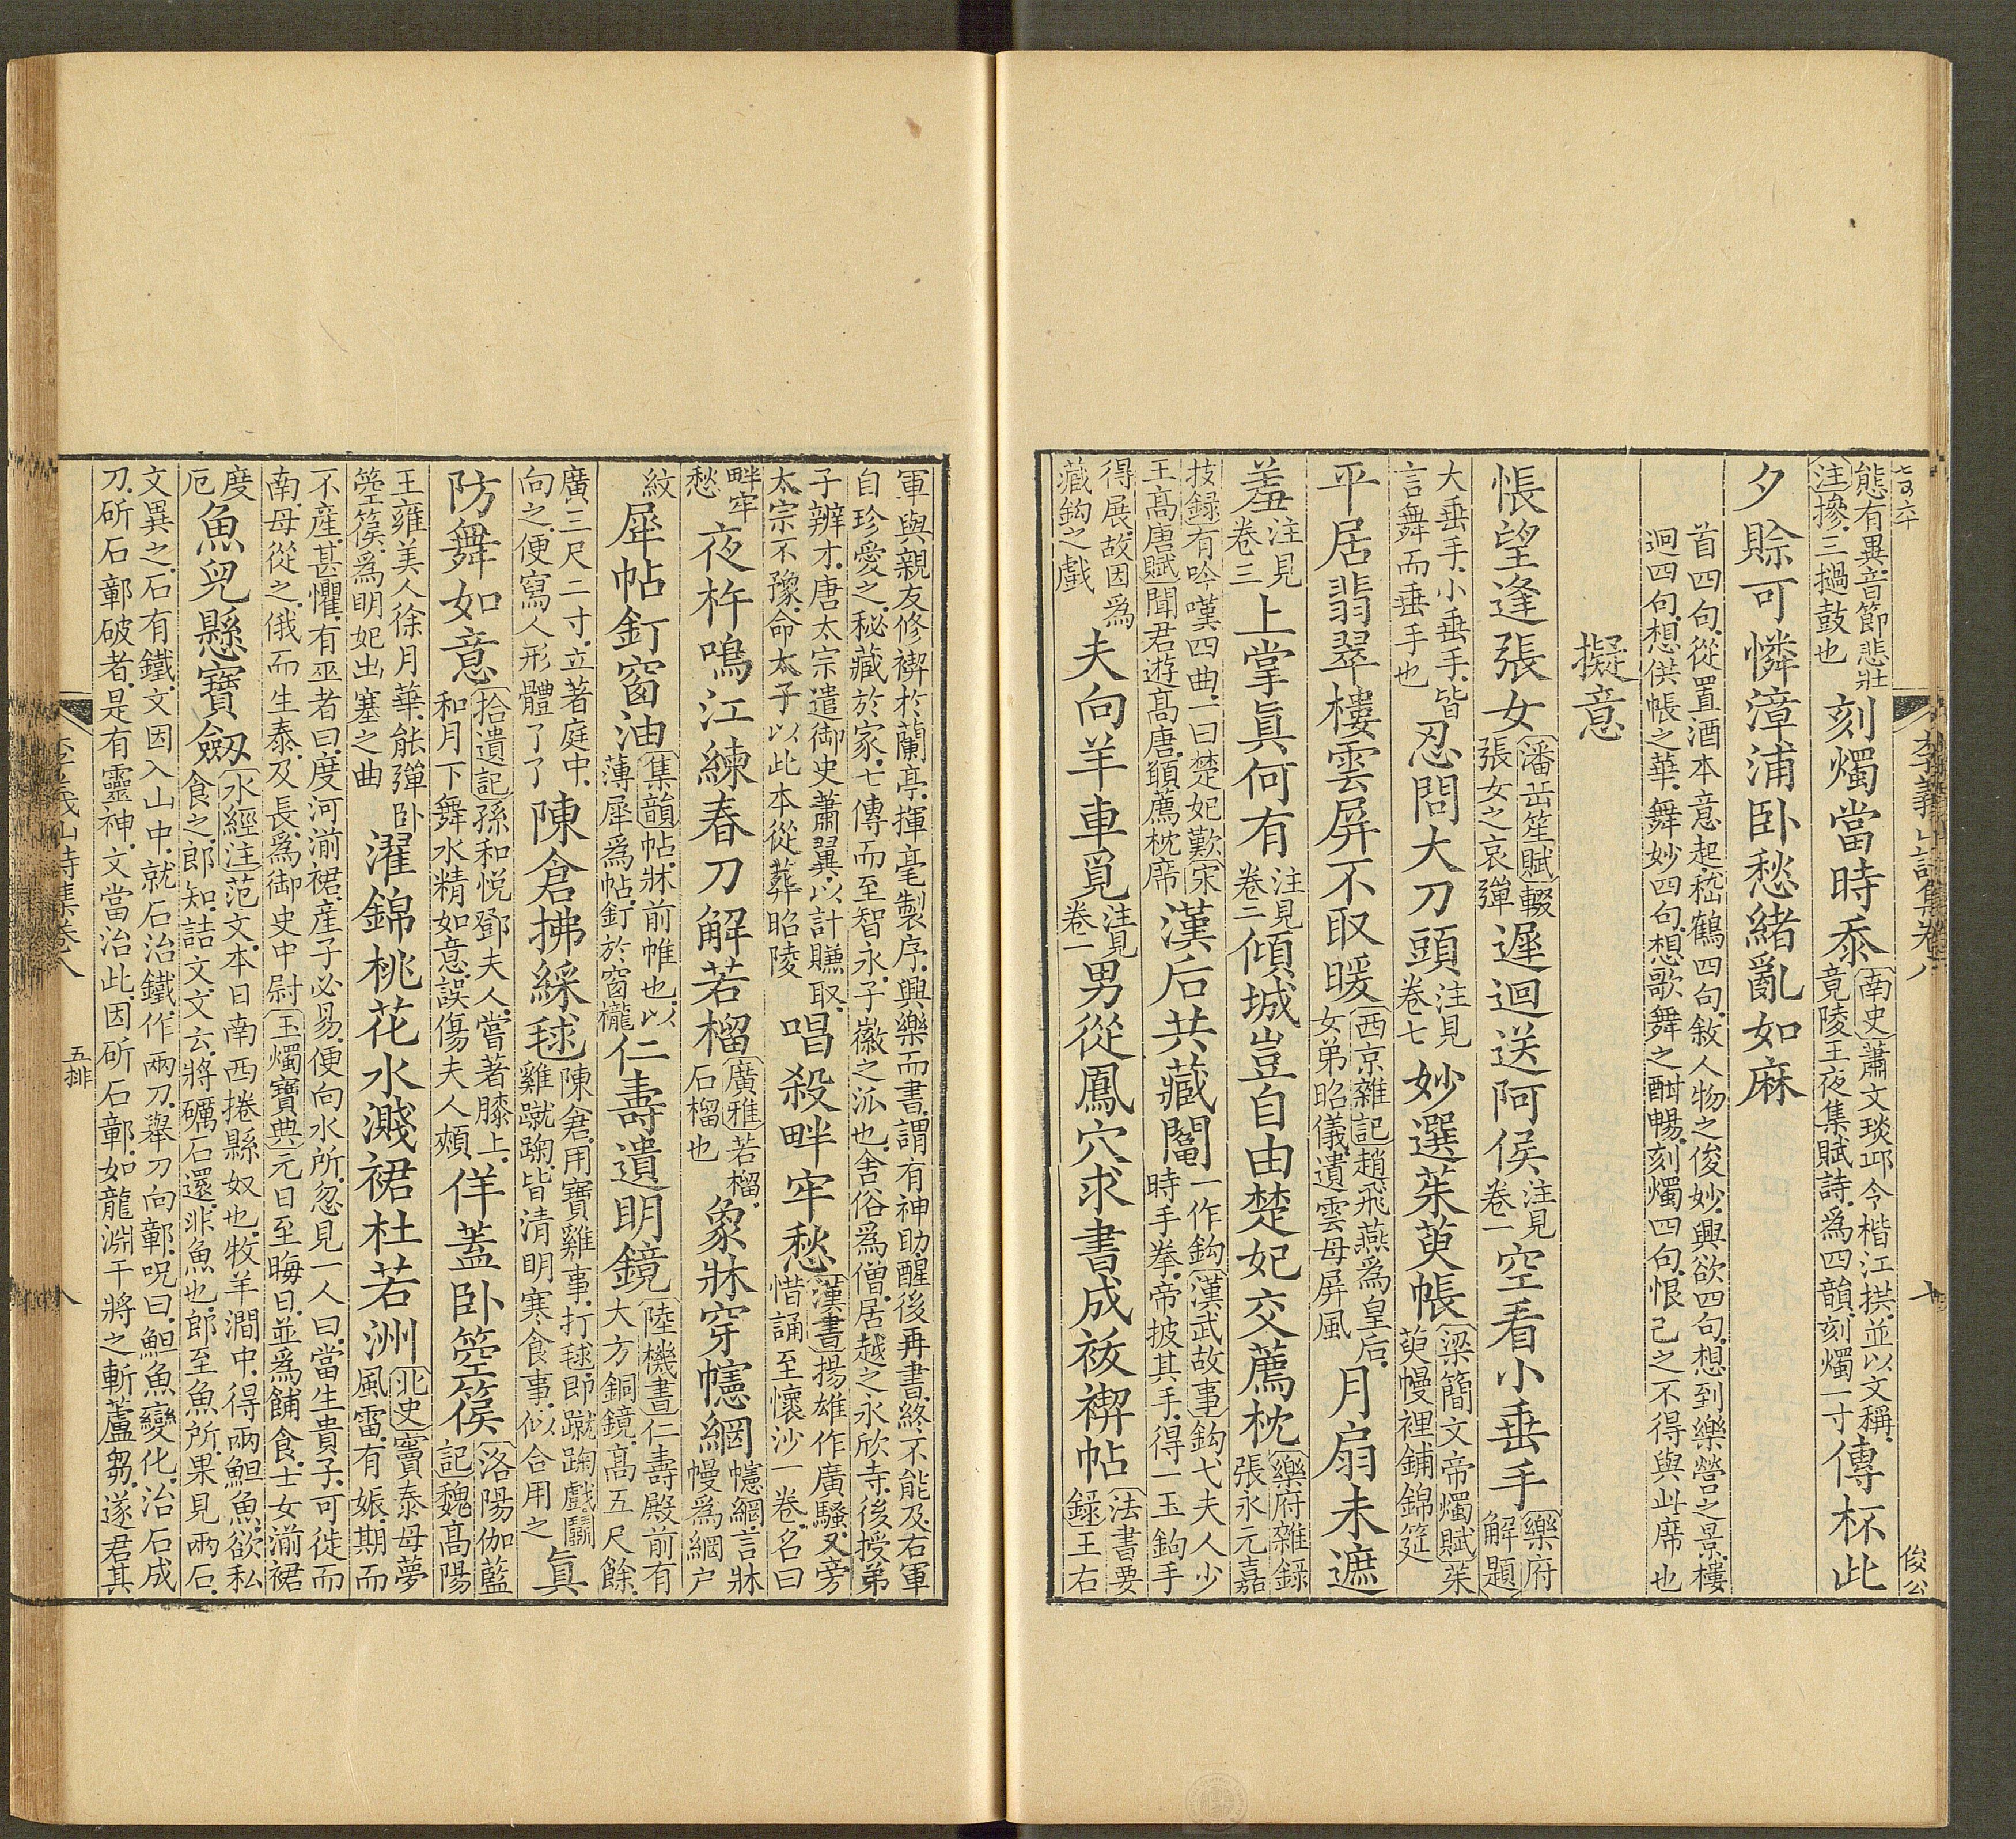 李義山詩集卷八
十
七百六十
俊公
態有異音節悲壯
注摻三撾鼓也
刻燭當時忝
南史蕭文琰邱令楷江拱並以文稱
竟陵王夜集賦詩爲四韻刻燭一寸
傳杯此
夕賒可憐漳浦卧愁緒亂如麻
首四句從置酒本意起嵇鶴四句敘人物之俊妙興欲四句想到樂營之景樓
迥四句想供帳之華舞妙四句想歌舞之酣暢刻燭四句恨己之不得與此席也
擬意
悵望逢張女
潘岳笙賦輟
張女之哀彈
遲迴送阿侯
注見
卷一
空看小垂手
樂府
解題
大垂手小垂手皆
言舞而垂手也
忍問大刀頭
注見
卷七
妙選茱萸帳
梁簡文帝燭賦茱
萸幔裡鋪錦筵
平居翡翠樓雲屏不取暖
西京雜記趙飛燕爲皇后
女弟昭儀遺雲母屏風
月扇未遮
羞
注見
卷三
上掌眞何有
注見
卷二
傾城豈自由楚妃交薦枕
樂府雜錄
張永元嘉
技録有吟嘆四曲一曰楚妃歎宋
王高唐賦聞君遊高唐願薦枕席
漢后共藏䦰
一作鈎漢武故事鈎弋夫人少
時手拳帝披其手得一玉鈎手
得展故因爲
藏鈎之戲
夫向羊車覓
注見
卷一
男從鳳穴求書成祓禊帖
法書要
錄王右
軍與親友修禊於蘭亭揮毫製序興樂而書謂有神助醒後再書終不能及右軍
自珍愛之秘藏於家七傳而至智永子徽之派也舍俗爲僧居越之永欣寺後授弟
子辨才唐太宗遣御史蕭翼以計賺取
太宗不豫命太子以此本從葬昭陵
唱殺畔牢愁
漢書揚雄作廣騷又旁
惜誦至懷沙一卷名曰
畔牢
愁
夜杵鳴江練春刀解若榴
廣雅若榴
石榴也
象牀穿幰網
幰網言牀
幔爲網户
紋
犀帖釘窗油
集韻帖牀前帷也以
薄犀爲帖釘於窗櫳
仁壽遺明鏡
陸機書仁壽殿前有
大方銅鏡高五尺餘
廣三尺二寸立著庭中
向之便寫人形體了了
陳倉拂綵毬
陳倉用寶雞事打毬即蹴踘戲鬬
雞蹴踘皆清明寒食事似合用之
眞
防舞如意
拾遺記孫和悅鄧夫人嘗著膝上
和月下舞水精如意誤傷夫人頰
佯蓋卧箜篌
洛陽伽藍
記魏高陽
王雍美人徐月華能彈卧
箜篌爲明妃出塞之曲
濯錦桃花水濺裙杜若洲
北史竇泰母夢
風雷有娠期而
不產甚懼有巫者曰度河湔裙產子必易便向水所忽見一人曰當生貴子可徙而
南母從之俄而生泰及長爲御史中尉玉燭寶典元日至晦日並爲餔食士女湔裙
度
厄
魚兒懸寶劒
水經注范文本日南西捲縣奴也牧羊澗中得兩䱇魚欲私
食之郎知詰文文云將礪石還非魚也郎至魚所果見兩石
文異之石有鐵文因入山中就石治鐵作兩刀舉刀向鄣呪曰䱇魚變化治石成
刀斫石鄣破者是有靈神文當治此因斫石鄣如龍淵干將之斬蘆芻遂君其
李義山詩集卷八
五排
八